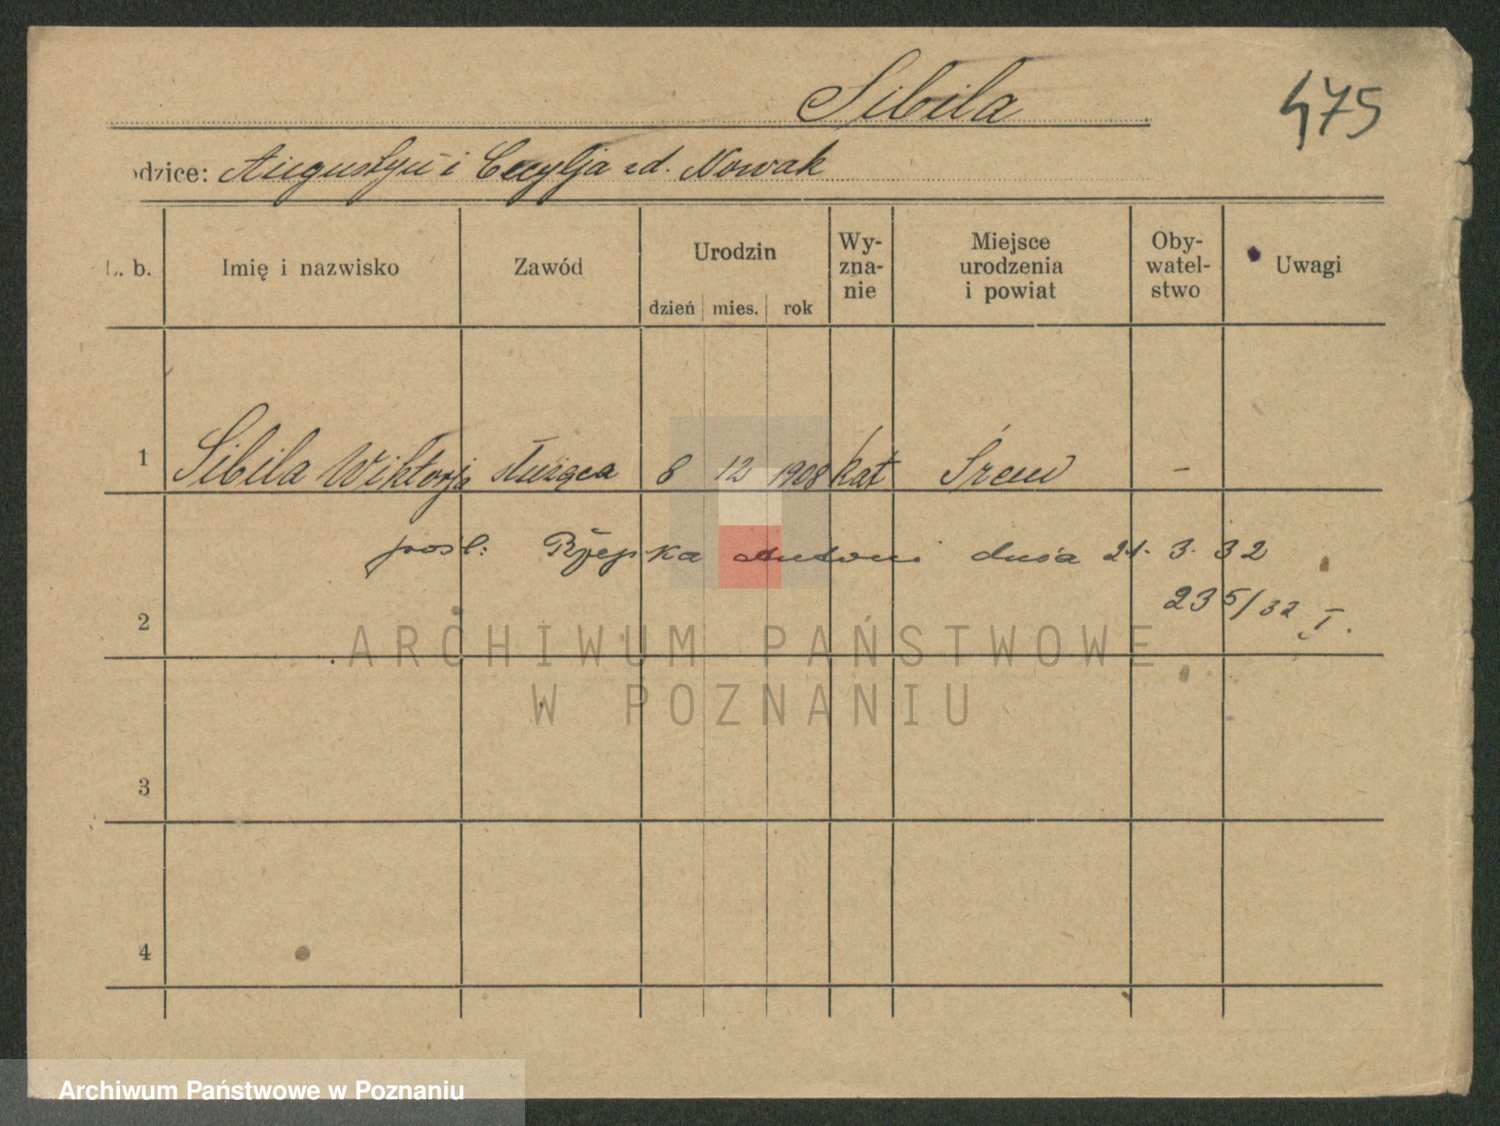 Sibila
475
odzice: Augustyn i Cecylja zd. Nowak
L. b.
Imię i nazwisko
Zawód
Urodzin
dzień
mies.
rok
Wy-
zna-
nie
Miejsce
urodzenia
i powiat
Oby-
watel-
stwo
Uwagi
1 Sibila Wiktorja służąca 8 12 1908 kat Śrem -
pośl: Rzepka Antoni dnia 21. 3. 32
235/32 I.
2
ARCHIWUM PAŃSTWOWE
W POZNANIU
3
4
Archiwum Państwowe w Poznaniu